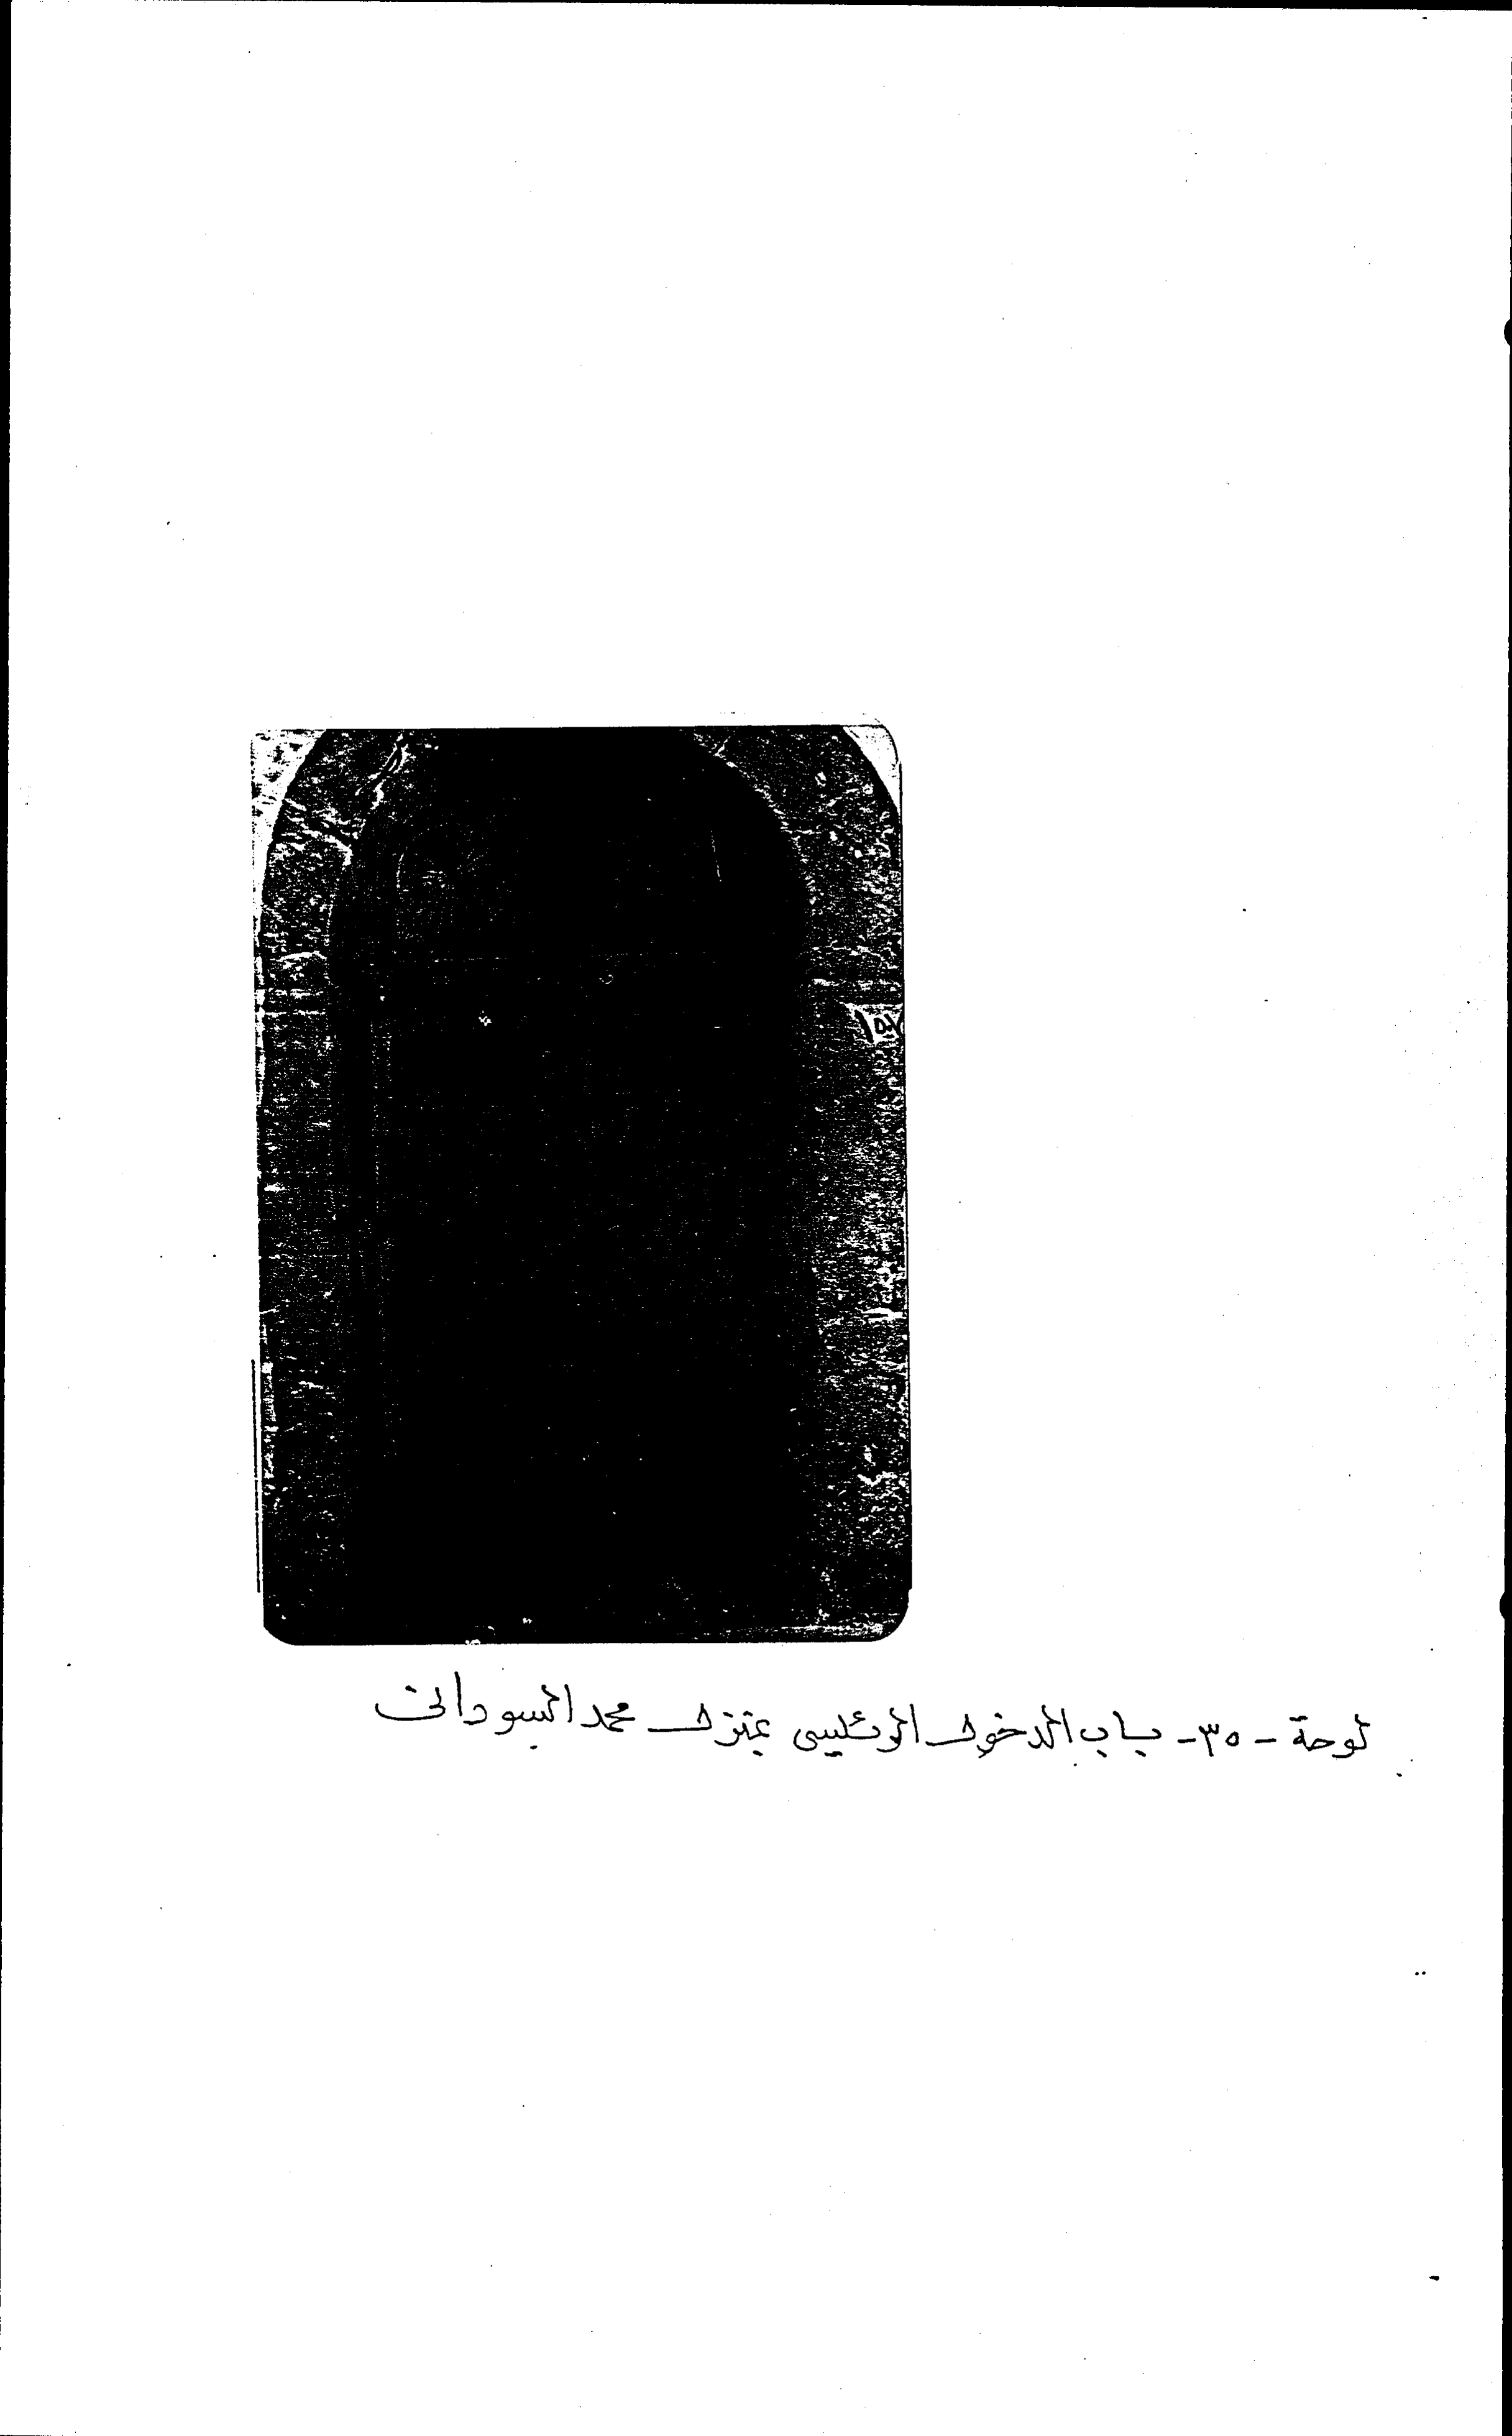 ١٥٧
لوحة - ٣٥ - باب الدخول الرئيسى بمنزل محمد السودانى